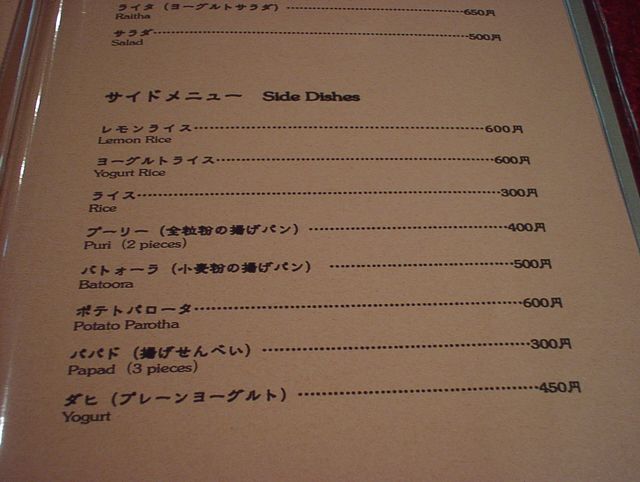 ライタ（ヨーグルトサラダ）……………………650円
Raitha
サラダ……………………500円
Salad
サイドメニュー Side Dishes
レモンライス……………………600円
Lemon Rice
ヨーグルトライス……………………600円
Yogurt Rice
ライス……………………300円
Rice
プーリー（全粒粉の揚げパン）……………………400円
Puri（2 pieces）
バトォーラ（小麦粉の揚げパン）……………………500円
Batoora
ポテトパロータ……………………600円
Potato Parotha
パパド（揚げせんべい）……………………300円
Papad（3 pieces）
ダヒ（プレーンヨーグルト）……………………450円
Yogurt